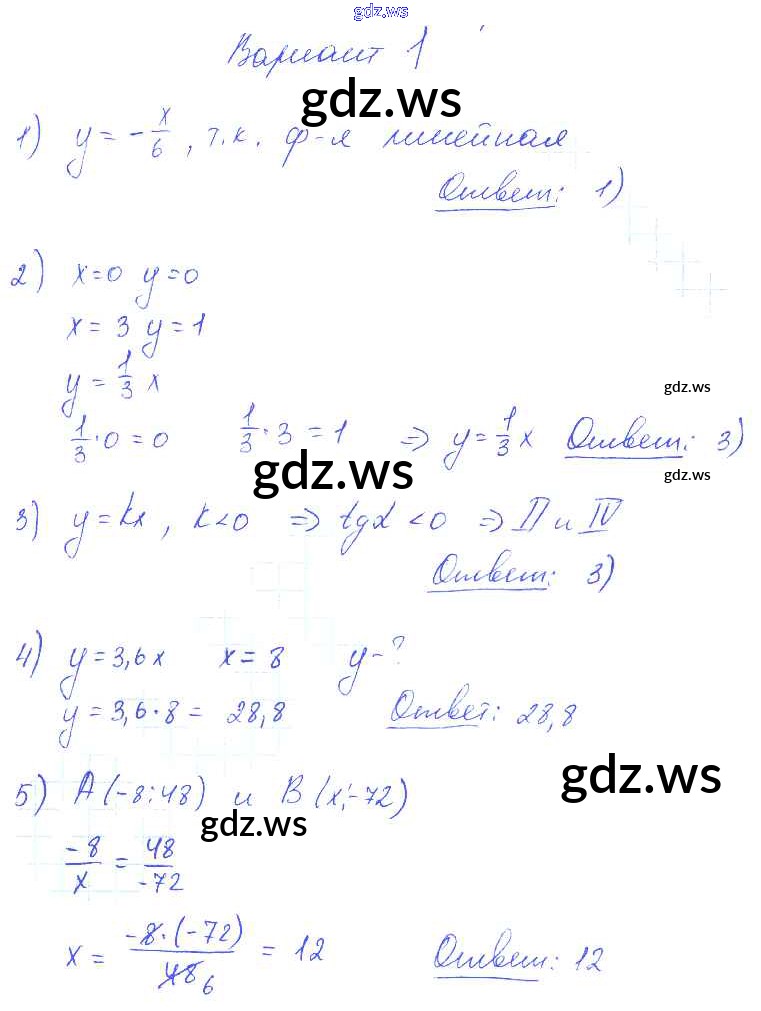 gdz.ws
Вариант 1
gdz.ws
1) y = -x/6, т.к. ф-я линейная
Ответ: 1)
2) x=0 y=0
x = 3 y = 1
y = 1/3 x
gdz.ws
1/3 · 0 = 0 1/3 · 3 = 1 => y = 1/3 x Ответ: 3)
gdz.ws
gdz.ws
3) y = kx, k<0 => tgα <0 => II и IV
Ответ: 3)
4) y = 3,6x x = 8 y - ?
y = 3,6 · 8 = 28,8 Ответ: 28,8
gdz.ws
5) A(-8;48) и B(x;-72)
gdz.ws
-8/x = 48/-72
x = -8·(-72)/48 6 = 12 Ответ: 12